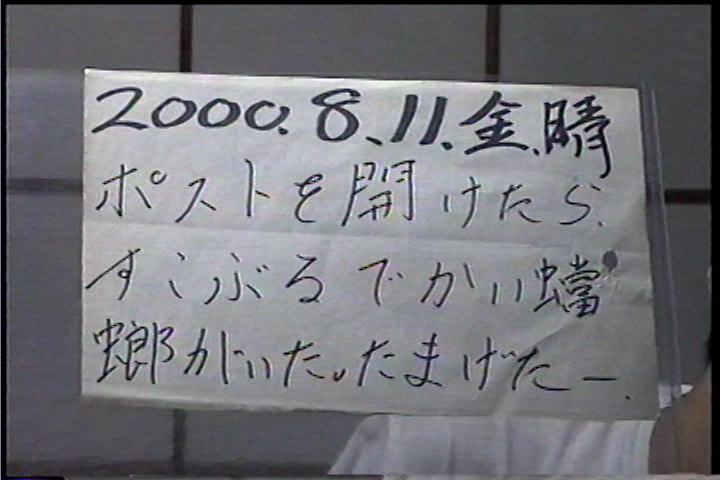 2000.8.11.金.晴
ポストを開けたら.
すこぶるでかい蟷
螂がいた。たまげたー.